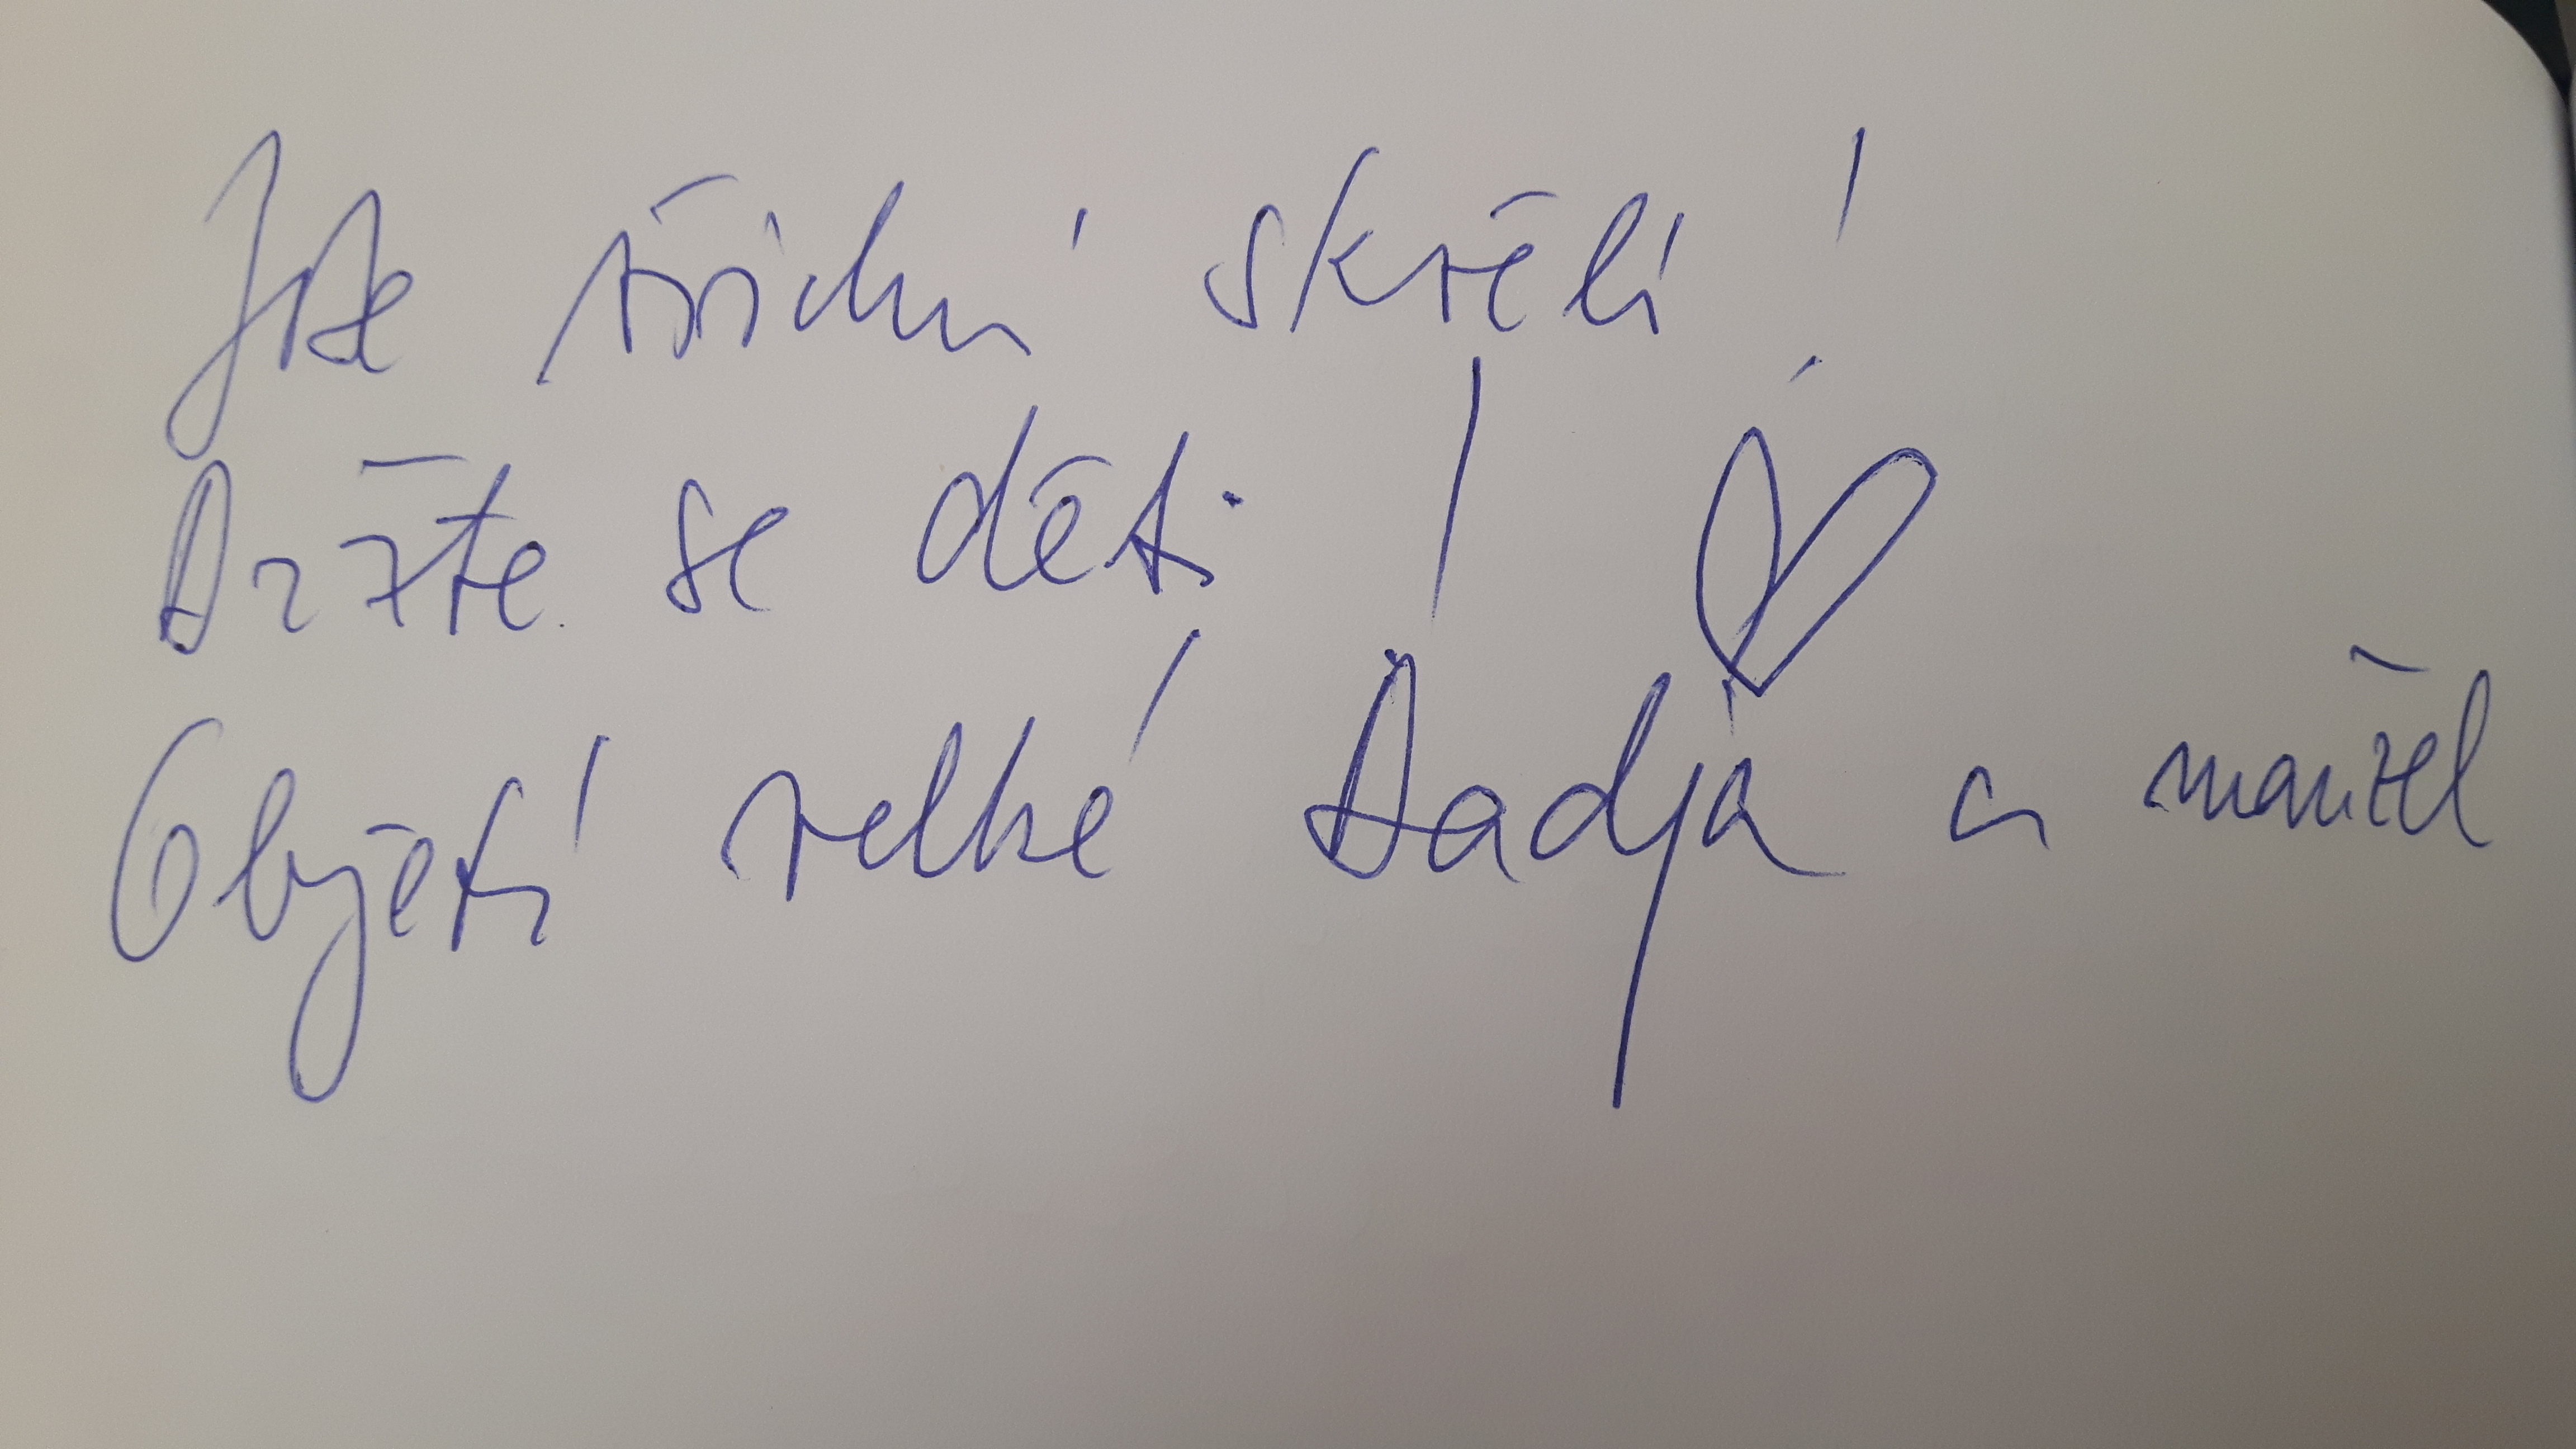 Jste všichni skvělí!
Držte se děti!
Objetí velké Dadja a manžel